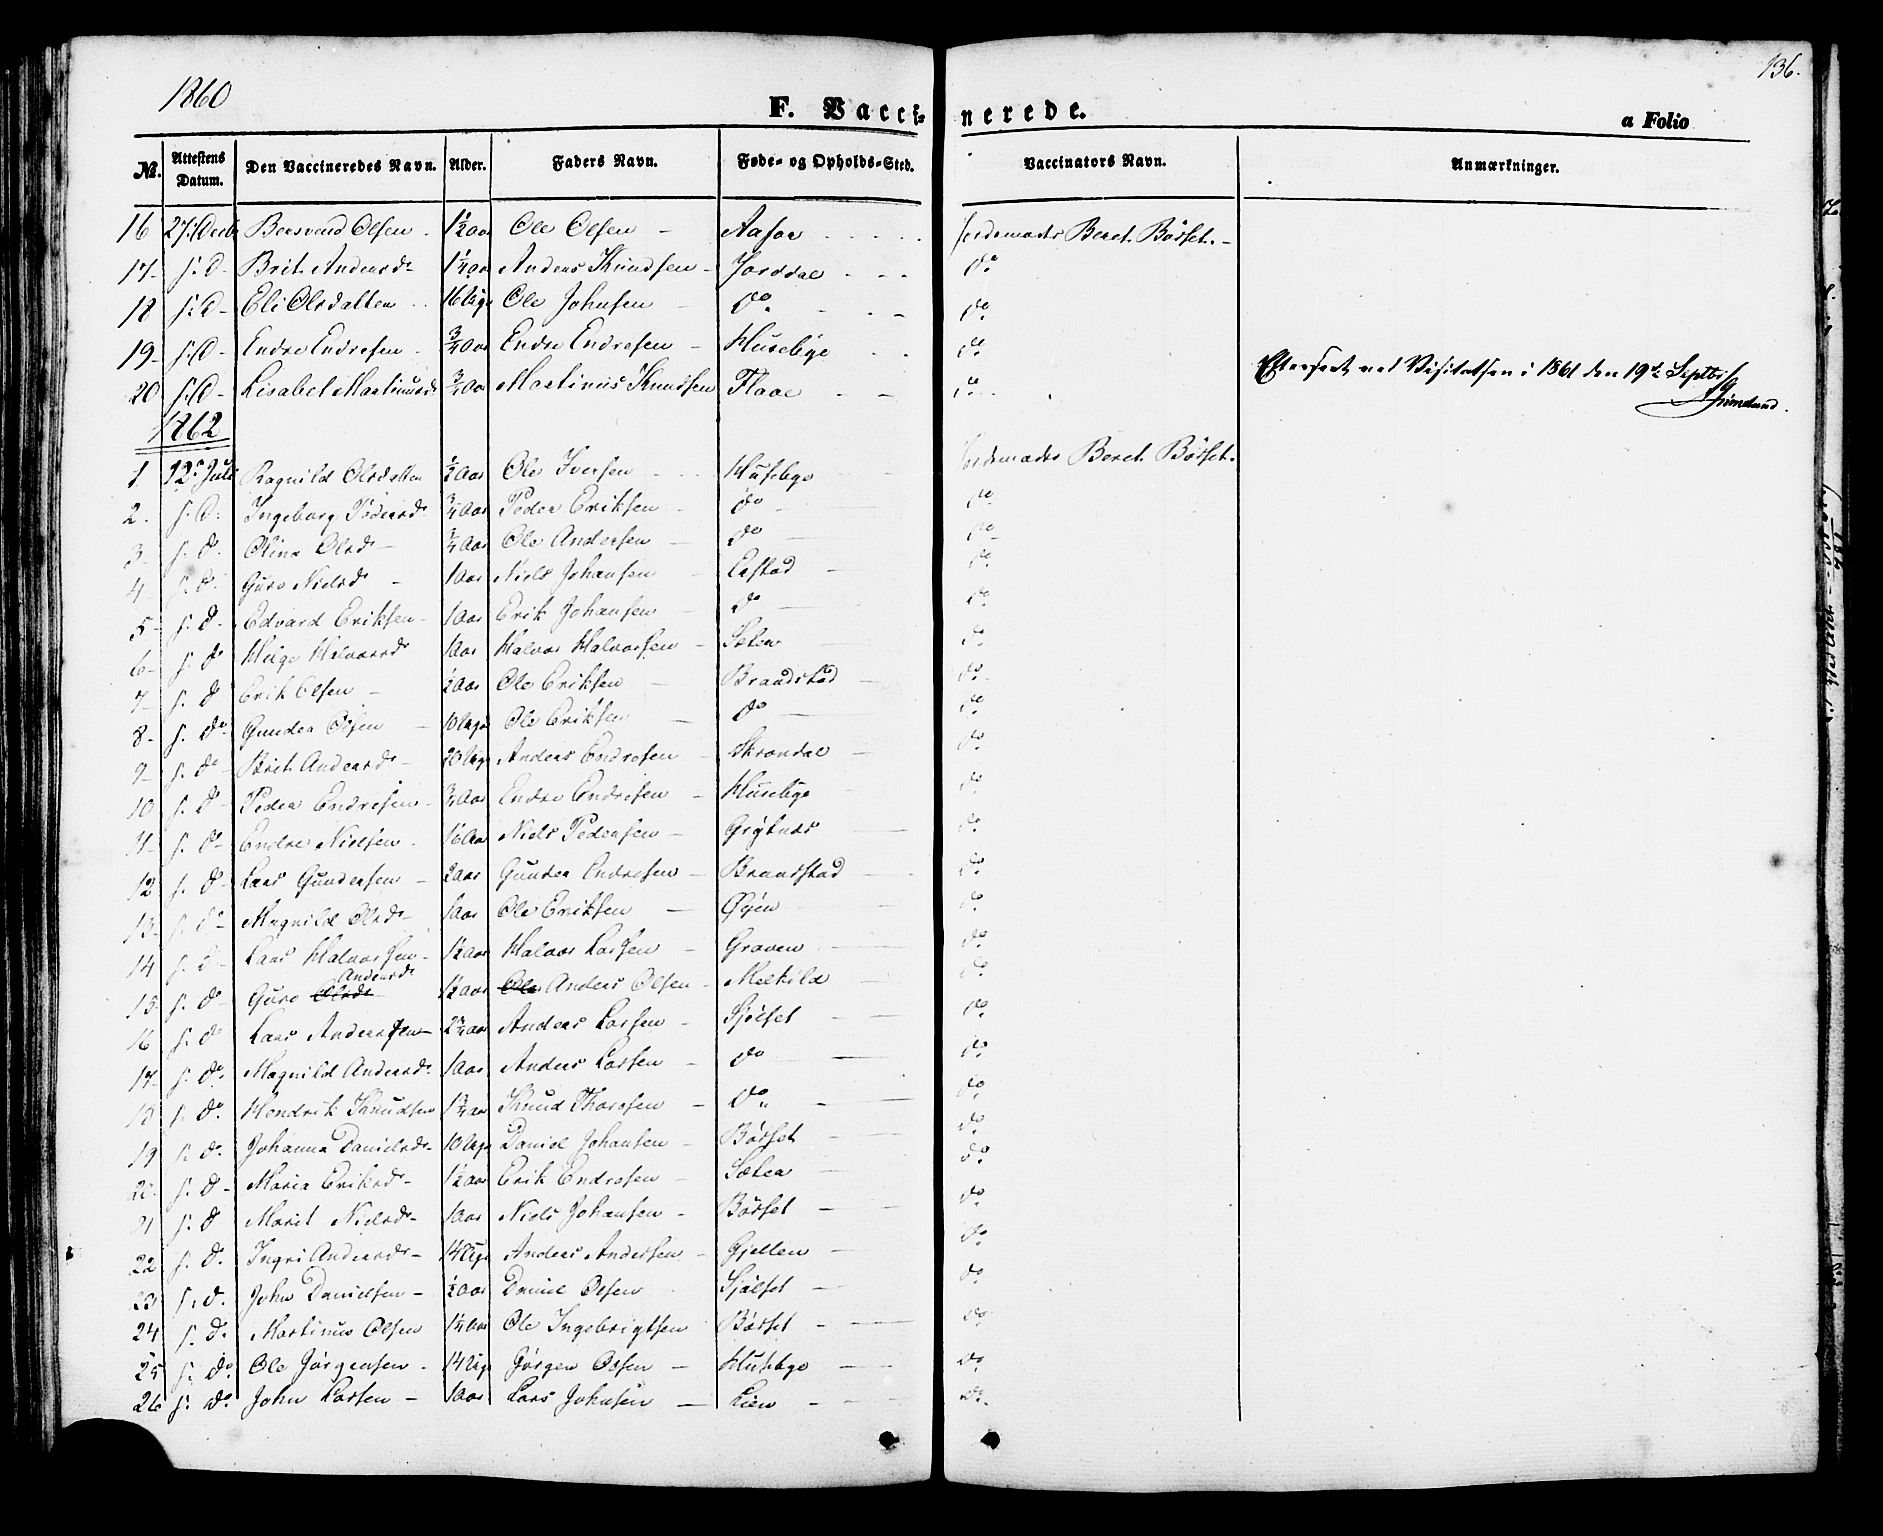 136.
1860
F. Vaccinerede.
a Folio
No. Attestens Datum. Den Vaccineredes Navn. Alder. Faders Navn. Føde- og Opholds-Sted. Vaccinators Navn. Anmærkninger.
16 27. Decb Olsen 1½ Aar Ole Olsen Jordemoder Beret Børset.
17 s. D. Brit Andersd. 1¼ Aar Anders Knudsen Jorddal do
18 s. D. Eli Olsdatter 16 Uger Ole Johnsen do do
19 s. D. Endre Endresen ¾ Aar Endre Endresen Husebye do
20 s. D. Lisabet Martinusd. ¾ Aar Martinus Knudsen Flaae do
Efterseet ved Visitatsen i 1861 den 19de Septbr
1862
1. 12. Juli Ragnild Olsdatter ½ Aar Ole Iversen Husebye Jordemoder Beret Børset.
2. s. D. Ingeborg Pedersd. ¾ Aar Peder Eriksen do do
3 s. d. Olina Olsd. ¾ Aar Ole Andersen do do
4 s. d. Guro Nielsd. 1 Aar Niels Johansen do
5 s. d. Edvard Eriksen 1 Aar Erik Johansen do do
6 s. d. Halvorsd. 1 Aar Halvor Halvorsen Sæter do
7 s. d. Erik Olsen ½ Aar Ole Eriksen Brandstad do
8 s. do. Gunder Olsen 10 Uger Ole Eriksen do do
9 s. do Brit Andersd. 20 Uger Anders Endresen Skrondal do
10 s. d. Peder Endresen ¾ Aar Endre Endresen Husebye do
11 s. d. Endre Nielsen Niels Pedersen Grytnes do
12 s. d. Lars Gundersen 2 Aar Gunder Endresen Brandstad do
13 s. do Magnild Olsd. 1 Aar Ole Eriksen Øyen do
14 s. d. Lars Halvorsen 1½ Aar Halvor Larsen Graven do
Andersd.
15 s. do Guro Olsd. 1½ Aar Ole Anders Olsen Melkild do
16 s. do Lars Andersen 2¾ Aar Anders Larsen Sjølset do
17 s. do. Magnild Andersd. 1 Aar Anders Larsen do do
18 s. do. Hendrik Knudsen 1¾ Aar Knud Thoresen do do
19 s. do. Johanna Danielsd. 10 Uger Daniel Johansen Børset do
20 s. d. Maria Eriksd. 1½ Aar Erik Endresen Sæter do
21 s. d Marit Nielsd. 1 Aar Niels Johansen Børset do
22 s. d. Ingri Andersd. 14 Uger Anders Andersen Gjelten do
23 s. d. John Danielsen ½ Aar Daniel Olsen Sjølset do
24 s. d. Martinus Olsen 1¼ Aar Ole Ingebrigtsen Børset do
25 s. do. Ole Jørgensen 14 Uger Jørgen Olsen Husebye do
26 s. do. John Larsen 1 Aar Lars Johnsen Lien do.